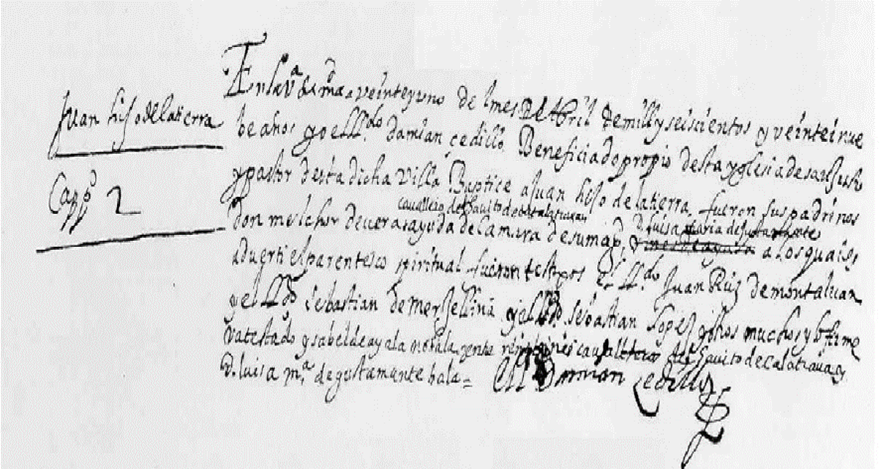 Juan hijo de la tierra
Capp.º 2
En la v.ª de m.d a veinte y uno del mes de Abril de mill y seiscientos y veinte i nue
be años yo el ll.do damian çedillo Beneficiado propio desta yglesia de san Just
y pastor desta dicha Villa Baptice a Juan hijo de la tierra fueron sus padrinos
cavallero del havito de calatrava
don melchor de vera ayuda de camara de su mag.d y D. luisa maria de justamente
a los quales
adverti el parentesco spiritual fueron testigos el ll.do Juan Ruiz de montalvan
y el ll.do sebastian de y el ll.do sebastian lopez y otros muchos y lo firme
va testado y sabel de ayala no vala entre renglones cavallero del havito de calatrava y
D. luisa m.ª de gustamente bala = Damian Cedillo